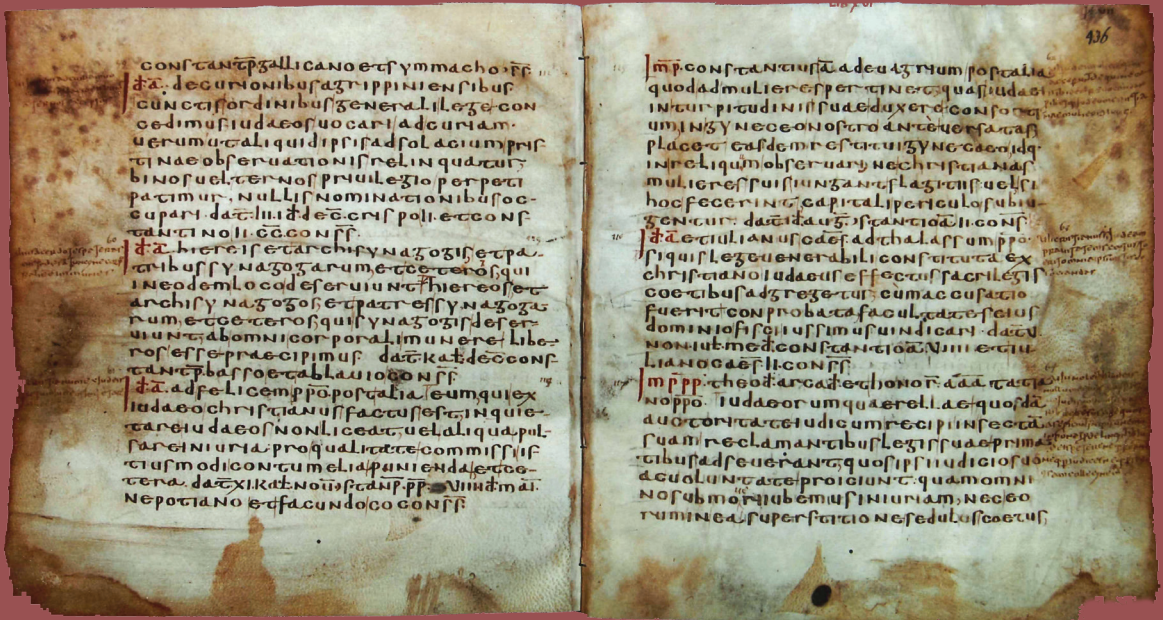 constantp gallicano et symmacho ss
id a decurionibus agrippiniensibus
cunctis ordinibus generali lege con
cedimus iudaeos uocari ad curiam
uerum ut aliquid ipsis ad solacium pris
tinae obseruationis relinquatur
binos uel ternos priuilegio perpeti
patimur nullis nominationibus oc
cupari dat III id dec crispo II et cons
tantino II cc conss
id a hiereis et archisynagogis et pa
tribus synagogarum et ceteros qui
in eodem loco deseruiunt hiereos et
archisynagogos et patres synagoga
rum et ceteros qui synagogis deser
uiunt ab omni corporali munere libe
ros esse praecipimus dat kal dec cons
tantp basso et ablauio conss
id a ad felicem ppo post alia eum qui ex
iudaeo christianus factus est inquie
tare iudaeos non liceat uel aliqua pul
sare iniuria pro qualitate commissi is
tiusmodi contumelia punienda et ce
tera dat XI kal nou stanp pp VIII id mai
nepotiano et facundo conss
LIB XVI
436
imp constantius a ad euagrium post alia
quod ad mulieres pertinet quas iudaei
in turpitudinis suae duxere consorti
um in gyneceo nostro ante uersatas
placet easdem restitui gynecaeo idq
in reliquum obseruari ne christianas
mulieres suis iungant flagitiis uel si
hoc fecerint capitali periculo subiu
gentur dat id aug stantio a II cons
id a et iulianus caes ad thalassum ppo
si quis lege uenerabili constituta ex
christiano iudaeus effectus sacrilegis
coetibus adgregetur cum accusatio
fuerit conprobata facultates eius
dominio fisci iussimus uindicari dat V
non iul med constantio a VIIII et iu
liano caes II conss
imppp theod arcad et honor aaa tatia
no ppo iudaeorum querella e quosdam
auctoritate iudicum recipi in secta
suam reclamantibus legis suae prima
tibus adseuerant quos ipsi iudicio suo
ac uoluntate proiciunt quam omni
no submoueri iubemus iniuriam nec eo
rum in ea superstitione sedulus coetus